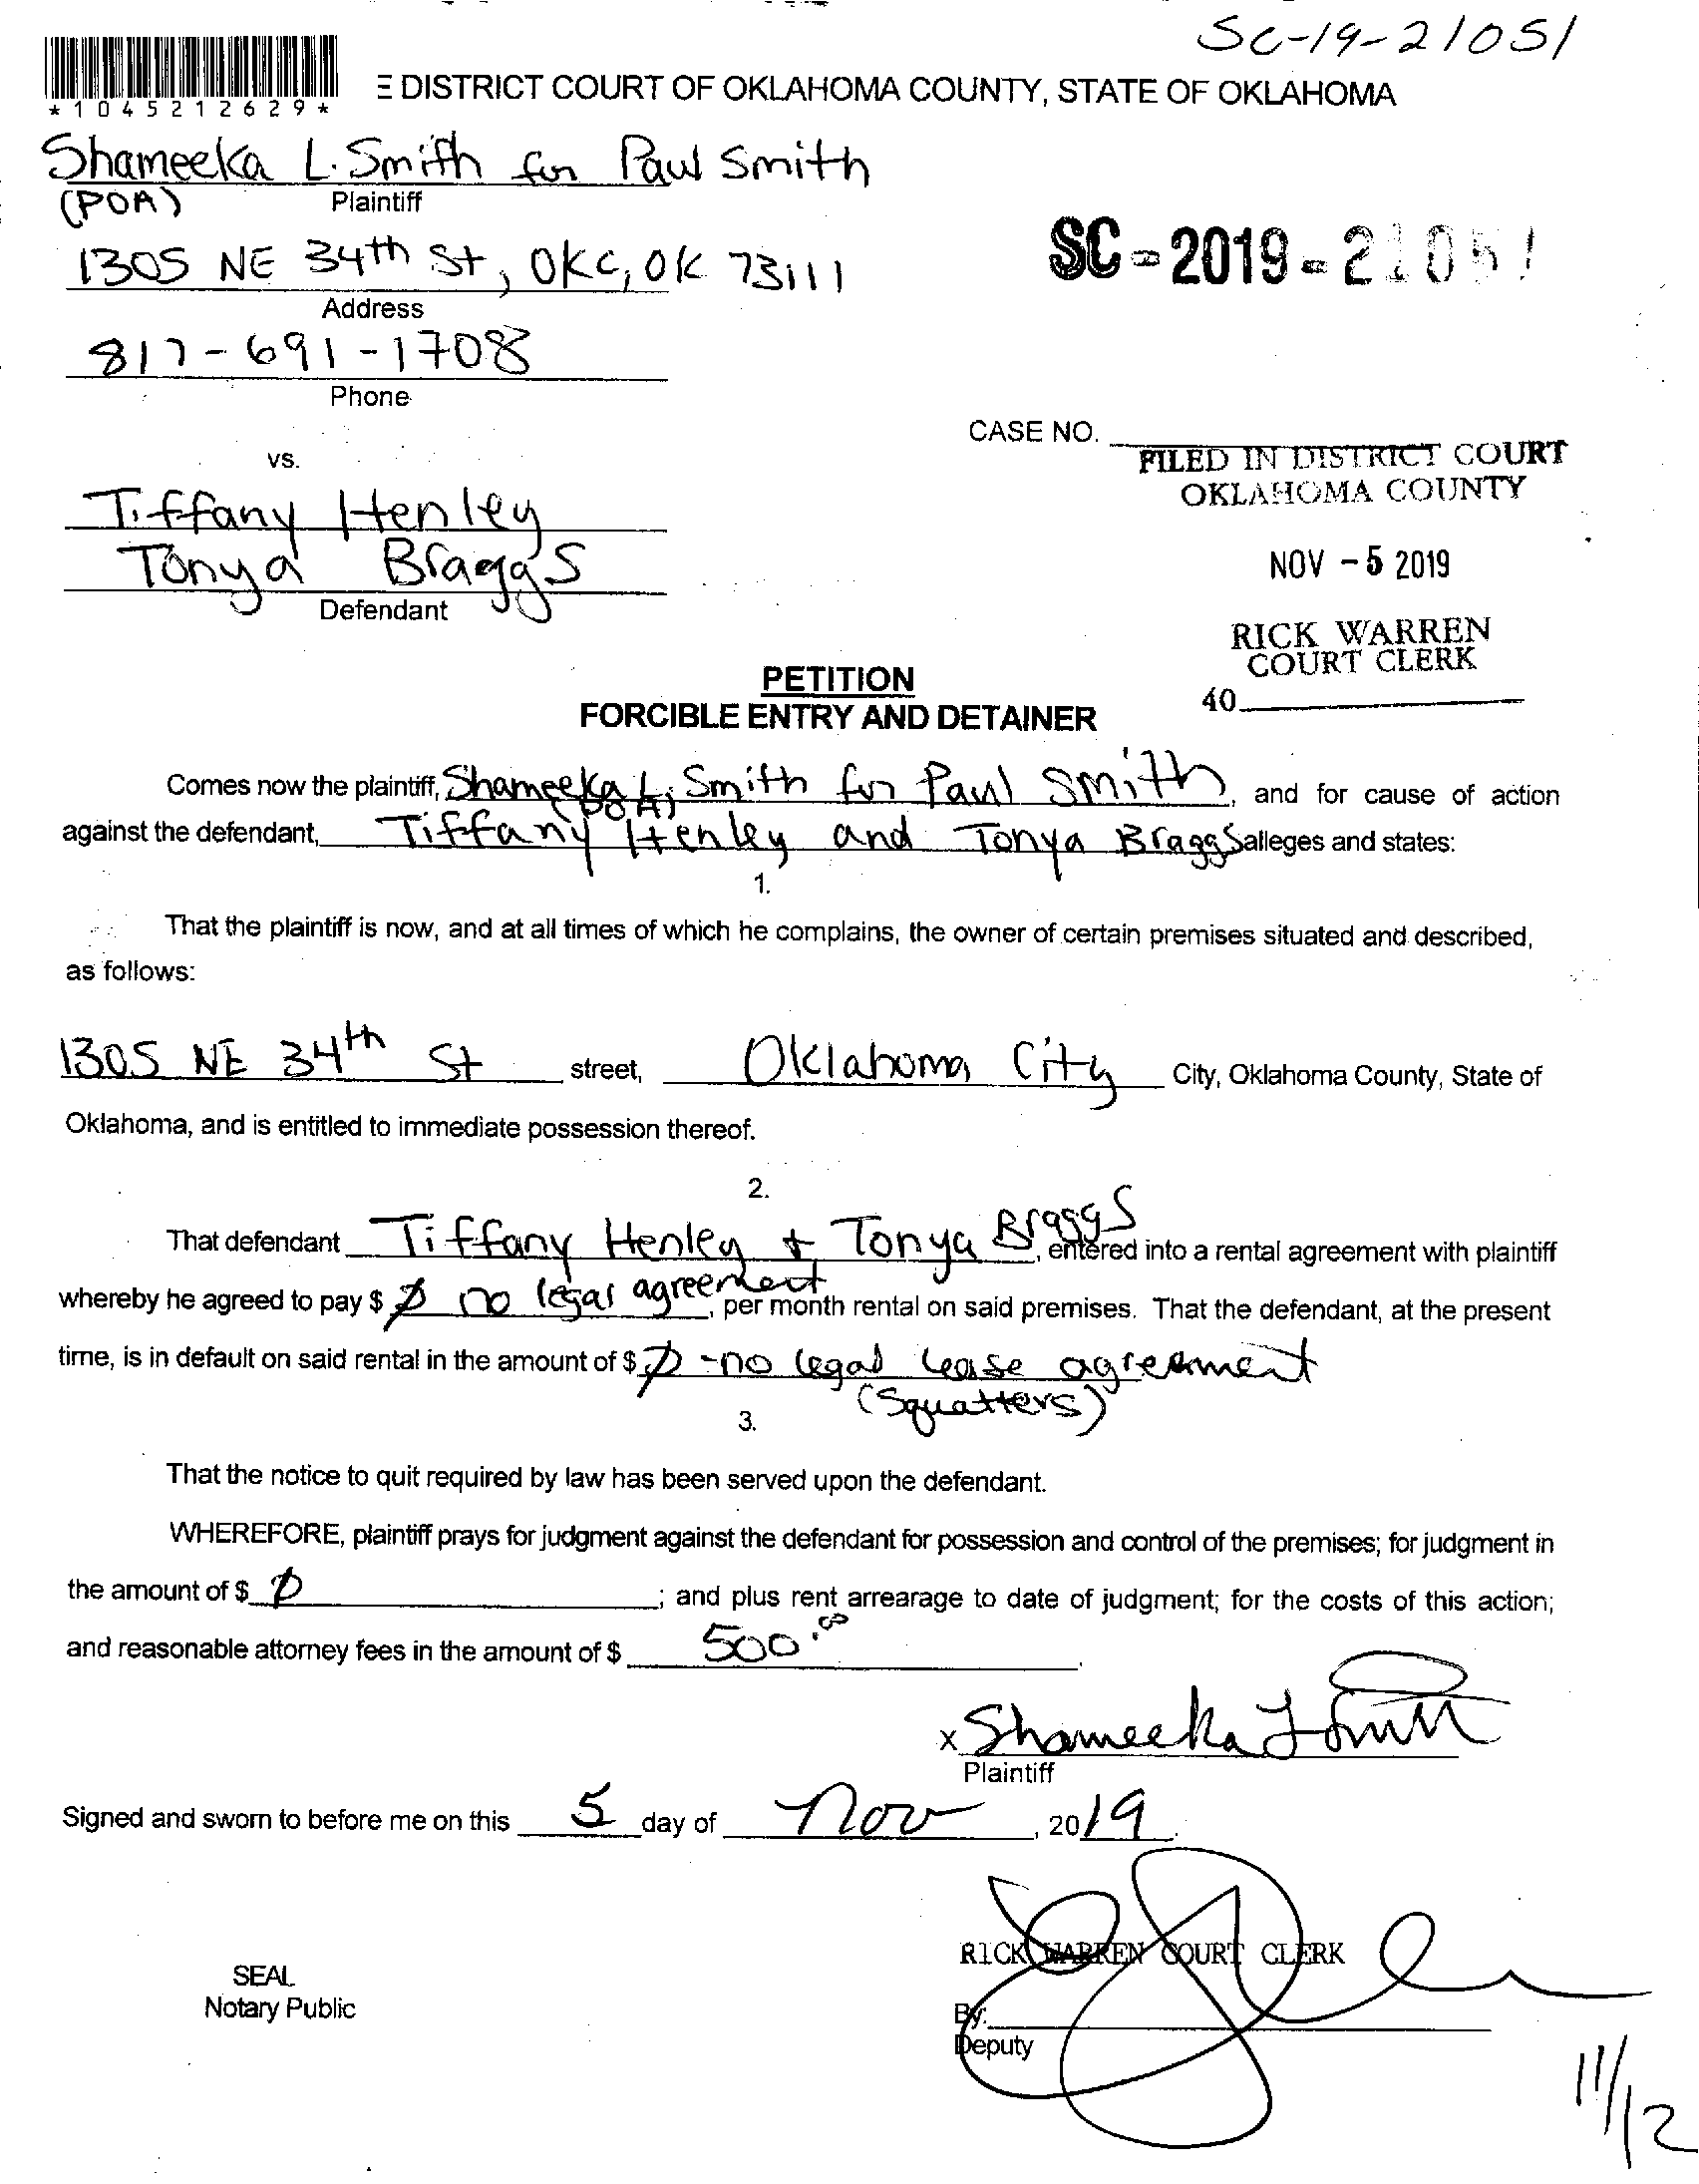 SC-19-21051
*1045212629*
E DISTRICT COURT OF OKLAHOMA COUNTY, STATE OF OKLAHOMA
Shameeka L. Smith for Paul Smith
(POA) Plaintiff
1305 NE 34th St, OKC, OK 73111
SC-2019-21051
Address
817-691-1708
Phone
CASE NO.
FILED IN DISTRICT COURT
OKLAHOMA COUNTY
vs.
Tiffany Henley
Tonya Braggs
Defendant
NOV -5 2019
RICK WARREN
COURT CLERK
40
PETITION
FORCIBLE ENTRY AND DETAINER
Comes now the plaintiff, Shameeka L. Smith for Paul Smith, and for cause of action
(POA)
against the defendant, Tiffany Henley and Tonya Braggs alleges and states:
1.
That the plaintiff is now, and at all times of which he complains, the owner of certain premises situated and described,
as follows:
1305 NE 34th St street, Oklahoma City City, Oklahoma County, State of
Oklahoma, and is entitled to immediate possession thereof.
2.
That defendant Tiffany Henley + Tonya Braggs, entered into a rental agreement with plaintiff
whereby he agreed to pay $ Ø no legal agreement, per month rental on said premises. That the defendant, at the present
time, is in default on said rental in the amount of $ Ø -no legal lease agreement
(Squatters)
3.
That the notice to quit required by law has been served upon the defendant.
WHEREFORE, plaintiff prays for judgment against the defendant for possession and control of the premises; for judgment in
the amount of $ Ø ; and plus rent arrearage to date of judgment; for the costs of this action;
and reasonable attorney fees in the amount of $ 500.00.
x Shameeka L Smith
Plaintiff
Signed and sworn to before me on this 5 day of Nov, 2019.
RICK WARREN COURT CLERK
SEAL
Notary Public
By:
Deputy
11/12